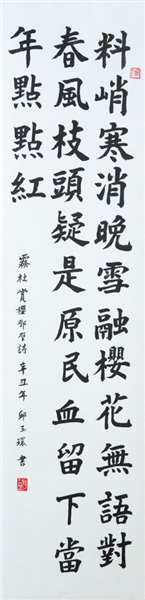 料峭寒消晚雪融櫻花無語對
春風枝頭疑是原民血留下當
年點點紅
霧社賞櫻鄧璧詩 辛丑年 邱玉環 書